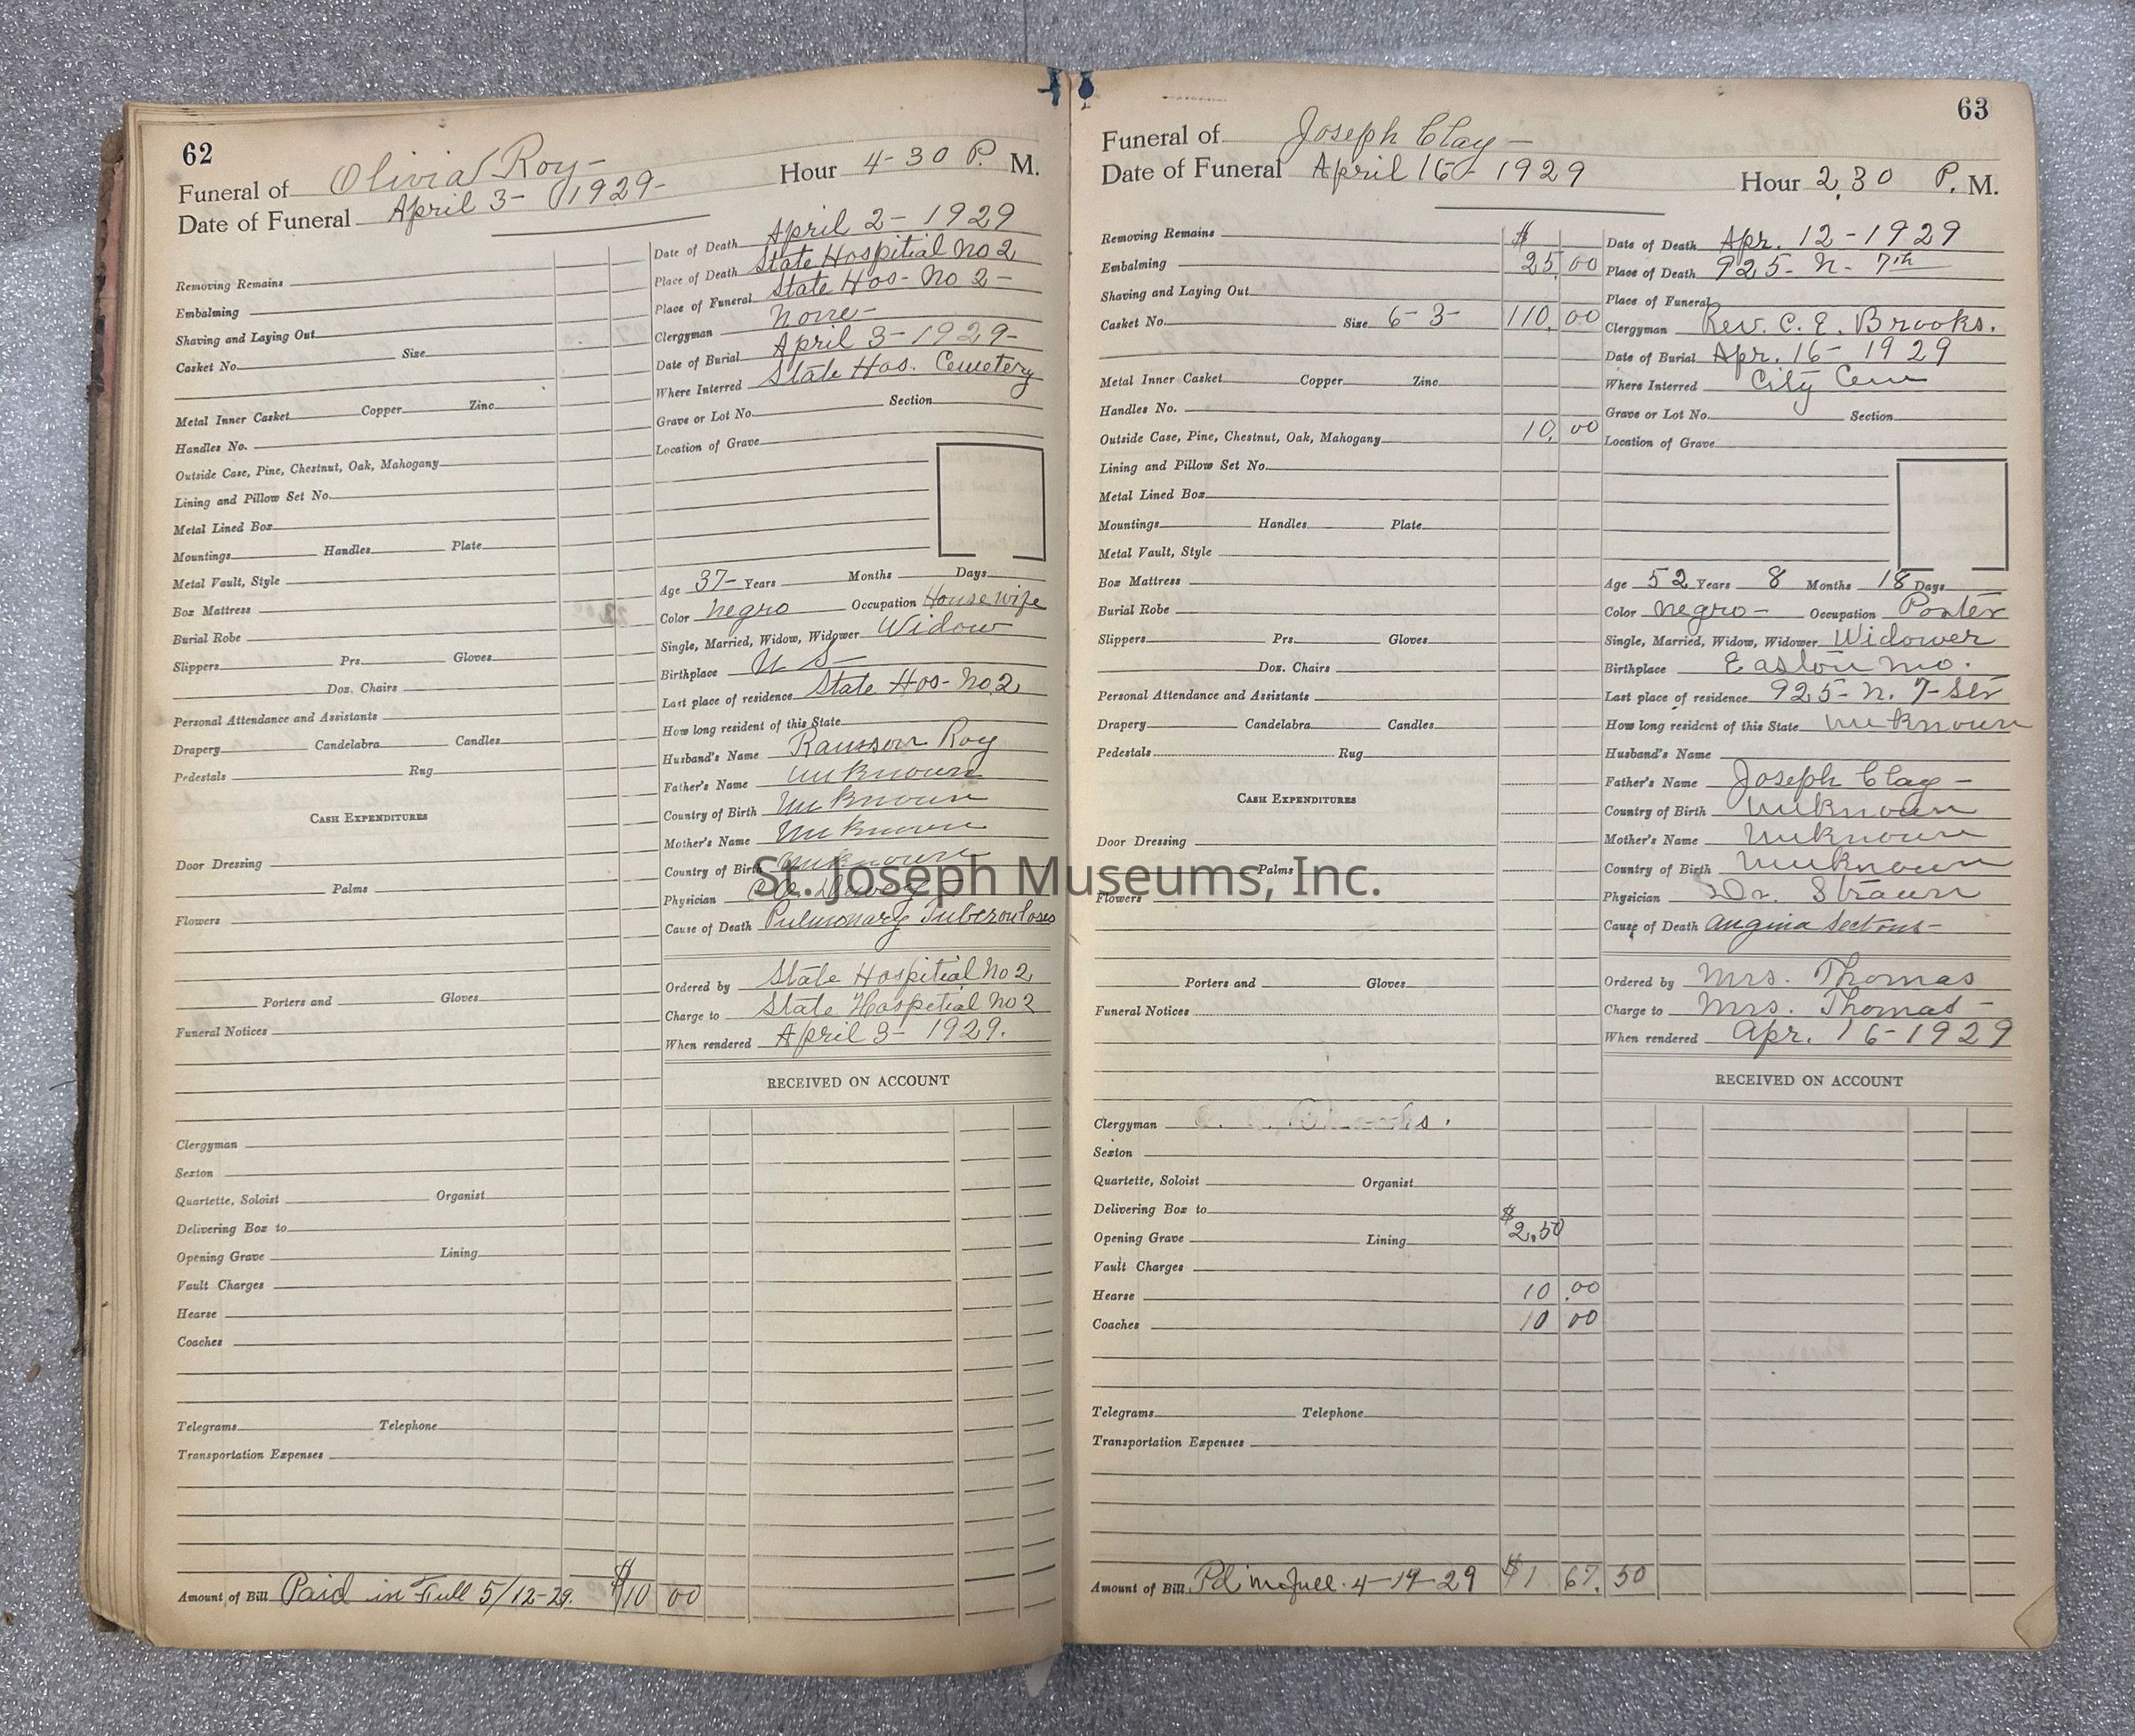 62
Funeral of Olivia Roy- Hour 4-30 P. M.
Date of Funeral April 3- 1929-
Removing Remains
Embalming
Shaving and Laying Out
Casket No. Size
Metal Inner Casket Copper Zinc
Handles No.
Outside Case, Pine, Chestnut, Oak, Mahogany
Lining and Pillow Set No.
Metal Lined Box
Mountings Handles Plate
Metal Vault, Style
Box Mattress
Burial Robe
Slippers Prs. Gloves
Doz. Chairs
Personal Attendance and Assistants
Drapery Candelabra Candles
Pedestals Rug
CASH EXPENDITURES
Door Dressing
Palms
Flowers
Porters and Gloves
Funeral Notices
Clergyman
Sexton
Quartette, Soloist Organist
Delivering Box to
Opening Grave Lining
Vault Charges
Hearse
Coaches
Telegrams Telephone
Transportation Expenses
Amount of Bill Paid in Full 5/12-29. $10 00
Date of Death April 2- 1929
Place of Death State Hospitial No 2
Place of Funeral State Hos- No 2-
Clergyman None-
Date of Burial April 3- 1929-
Where Interred State Hos. Cemetery
Grave or Lot No. Section
Location of Grave
Age 37- Years Months Days
Color Negro Occupation House wife
Single, Married, Widow, Widower Widow
Birthplace U S-
Last place of residence State Hos- No 2
How long resident of this State
Husband's Name Roy
Father's Name unknown
Country of Birth Unknown
Mother's Name Unknown
Country of Birth Unknown
Physician
Cause of Death Pulmonary Tuberculoses
Ordered by State Hospitial No 2
Charge to State Hospetial No 2
When rendered April 3- 1929.
RECEIVED ON ACCOUNT
63
Funeral of Joseph Clay-
Date of Funeral April 16- 1929 Hour 2.30 P. M.
Removing Remains $
Embalming 25.00
Shaving and Laying Out
Casket No. Size 6-3- 110.00
Metal Inner Casket Copper Zinc
Handles No.
Outside Case, Pine, Chestnut, Oak, Mahogany 10.00
Lining and Pillow Set No.
Metal Lined Box
Mountings Handles Plate
Metal Vault, Style
Box Mattress
Burial Robe
Slippers Prs. Gloves
Doz. Chairs
Personal Attendance and Assistants
Drapery Candelabra Candles
Pedestals Rug
CASH EXPENDITURES
Door Dressing
Palms
Flowers
Porters and Gloves
Funeral Notices
Clergyman
Sexton
Quartette, Soloist Organist
Delivering Box to
Opening Grave Lining $2.50
Vault Charges
Hearse 10.00
Coaches 10 00
Telegrams Telephone
Transportation Expenses
Amount of Bill Pd in full. 4-19-29 $1 67.50
Date of Death Apr. 12-1929
Place of Death 925- N- 7th
Place of Funeral
Clergyman Rev. C. E. Brooks.
Date of Burial Apr. 16- 1929
Where Interred City Cem
Grave or Lot No. Section
Location of Grave
Age 52 Years 8 Months 18 Days
Color Negro- Occupation Porter
Single, Married, Widow, Widower Widower
Birthplace Easton Mo.
Last place of residence 925- N. 7- Str
How long resident of this State unknown
Husband's Name
Father's Name Joseph Clay-
Country of Birth Unknown
Mother's Name Unknown
Country of Birth Unknown
Physician Dr.
Cause of Death Angina
Ordered by Mrs. Thomas
Charge to Mrs. Thomas-
When rendered Apr. 16-1929
RECEIVED ON ACCOUNT
St. Joseph Museums, Inc.